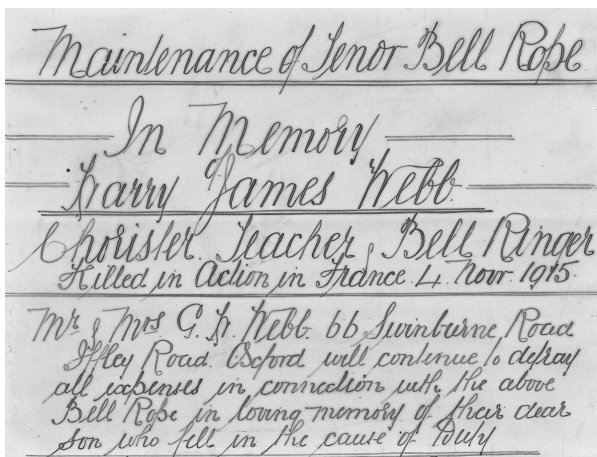 Maintenance of Tenor Bell Rope
In Memory
of
Harry James Webb.
Chorister. Teacher & Bell Ringer
Killed in Action in France. 4. Novr. 1915.
Mr & Mrs G. H. Webb. 66 Swinburne Road
Iffley Road. Oxford will continue to defray
all expenses in connection with the above
Bell Rope in loving memory of their dear
son who fell in the cause of Duty